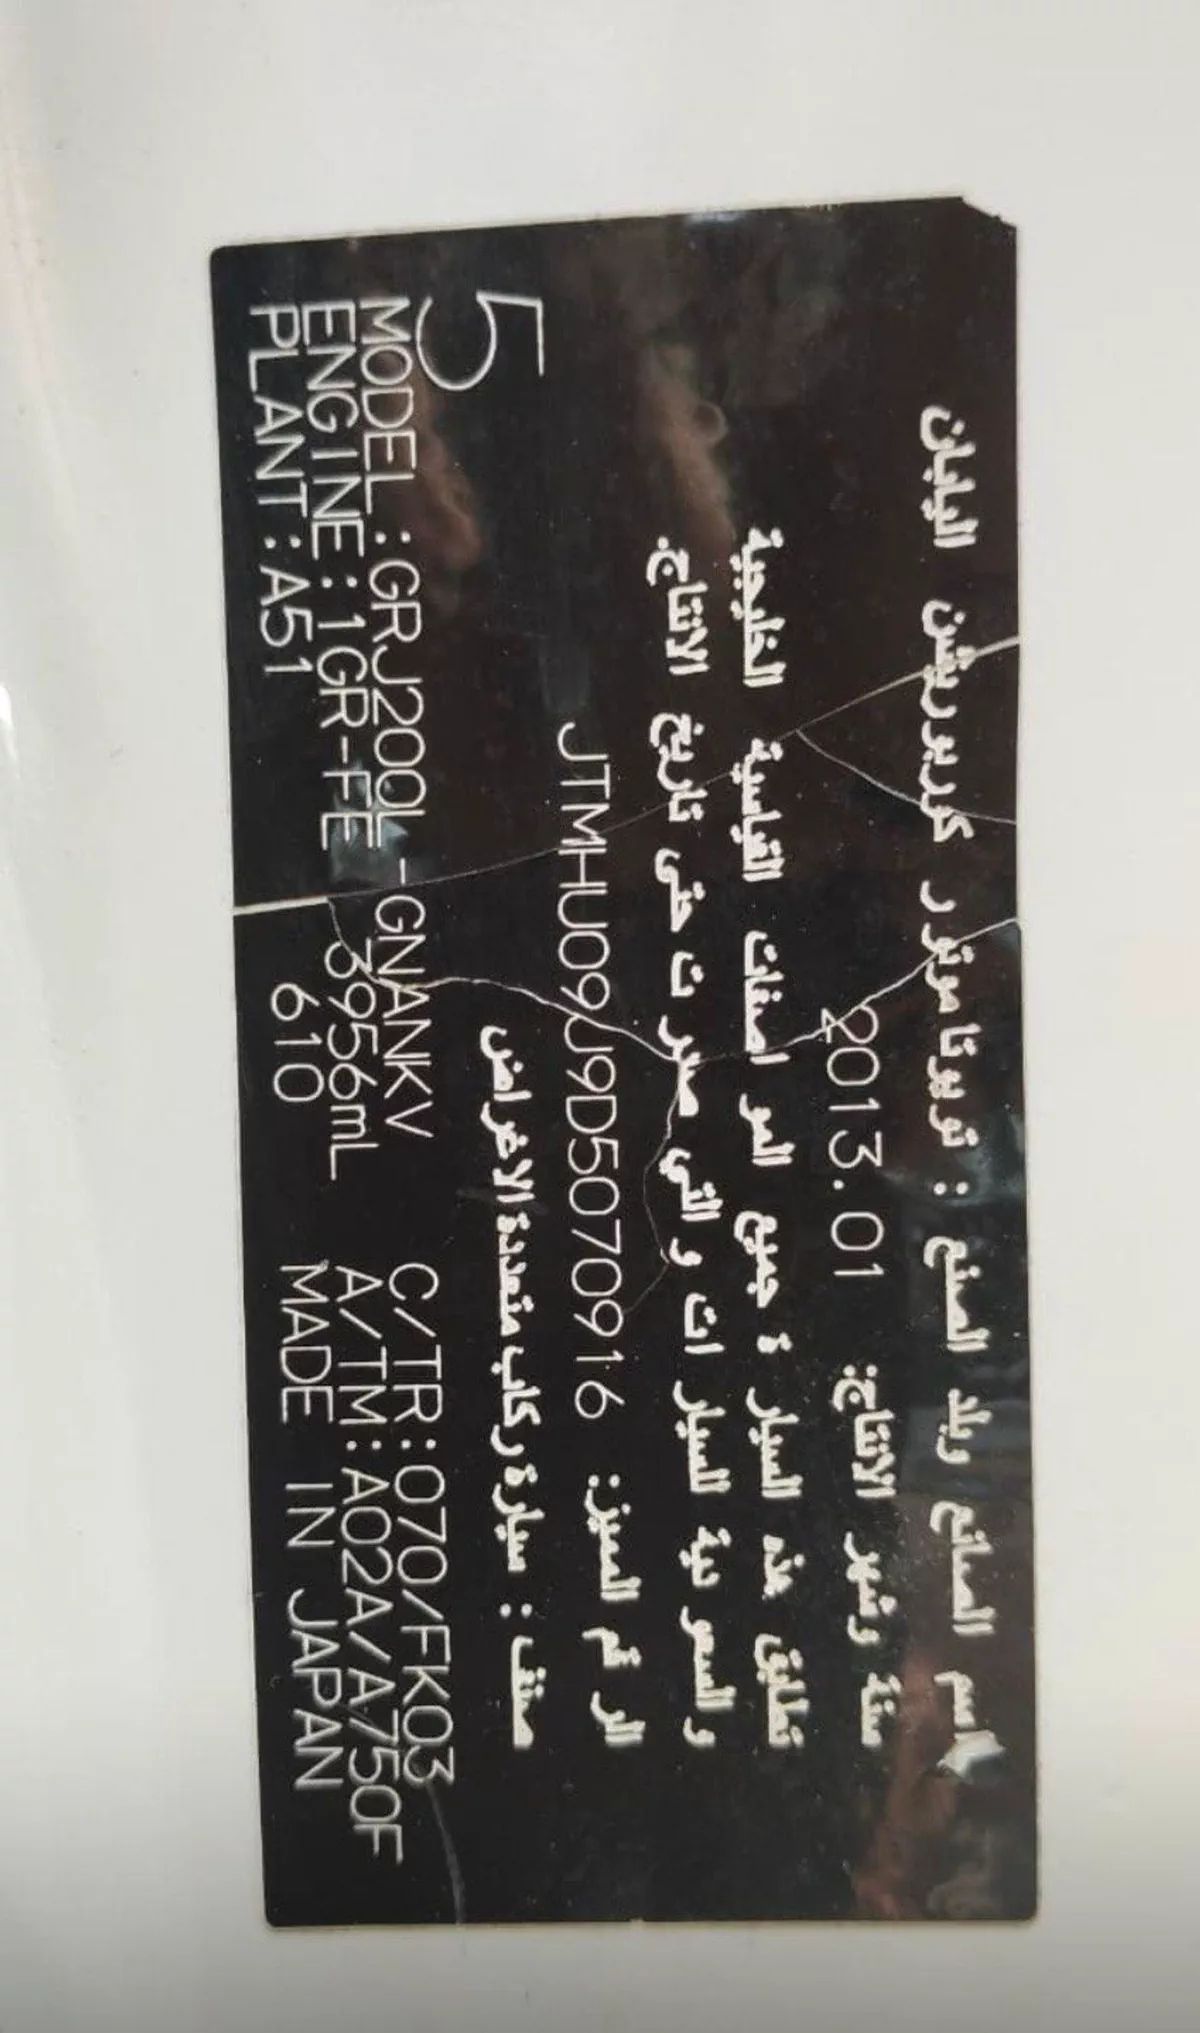 اسم الصانع وبلد الصنع : تويوتا موتور كوربوريشن اليابان
سنة وشهر الانتاج: 2013.01
تطابق هذه السيارة جميع المواصفات القياسية الخليجية
والسعودية للسيارات والتي صدرت حتى تاريخ الانتاج.
الرقم المميز: JTMHU09J9D5070916
صنف : سيارة ركاب متعددة الاغراض
5
MODEL :GRJ200L-GNANKV C/TR:070/FK03
ENGINE:1GR-FE 3956mL A/TM:A02A/A750F
PLANT:A51 610 MADE IN JAPAN